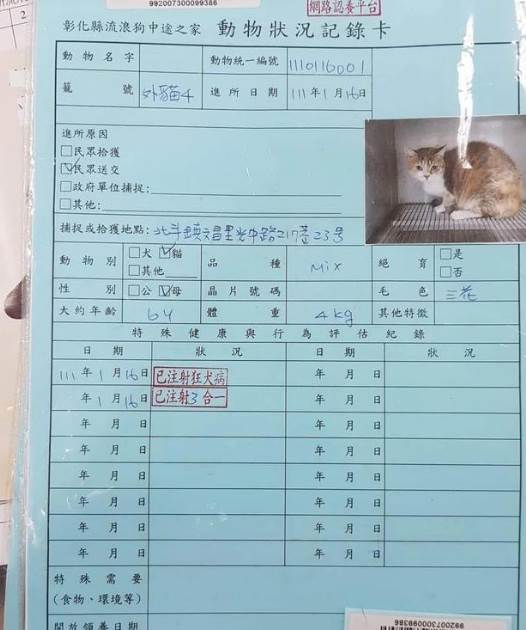 992007300099386
網路認養平台
彰化縣流浪狗中途之家 動物狀況記錄卡
動物名字 動物統一編號 1110116001
籠號 外貓4 進所日期 111年1月16日
進所原因
□民眾拾獲
☑民眾送交
□政府單位捕捉:
□其他:
捕捉或拾獲地點: 北斗鎮文昌里光中路217巷23号
動物別 □犬 ☑貓 □其他 品種 Mix 絕育 □是 □否
性別 □公 ☑母 晶片號碼 毛色 三花
大約年齡 6y 體重 4kg 其他特徵
特殊健康與行為評估紀錄
日期 狀況 日期 狀況
111年1月16日 已注射狂犬病 年月日
年1月16日 已注射3合一 年月日
年月日 年月日
年月日 年月日
年月日 年月日
年月日 年月日
年月日 年月日
年月日 年月日
特殊需要
(食物、環境等)
開放領養日期
992007300099386